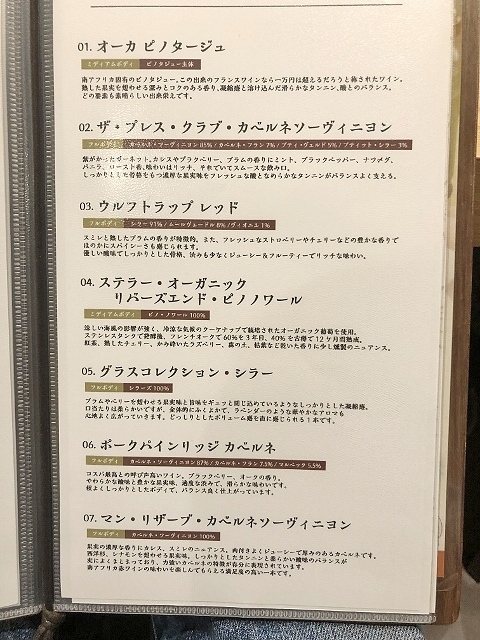 01. オーカ ピノタージュ
ミディアムボディ ピノタジュー主体
南アフリカ固有のピノタジュー。この出来のフランスワインなら一万円は超えるだろうと称されたワイン。
熟した果実を想わせる深みとコクのある香り、凝縮感と溶け込んだ滑らかなタンニン、酸とのバランス。
どの要素も素晴らしい出来栄えです。
02. ザ・プレス・クラブ・カベルネソーヴィニヨン
フルボディ カベルネ・ソーヴィニヨン 85% / カベルネ・フラン 7% / プティ・ヴェルド 5% / プティット・シラー 3%
紫がかったガーネット。カシスやブラックベリー、プラムの香りにミント、ブラックペッパー、ナツメグ、
バニラ、ロースト香。味わいはリッチ、それでいてスムースな飲み口。
しっかりとした骨格をもつ濃厚な果実味をフレッシュな酸となめらかなタンニンがバランスよく支える。
03. ウルフトラップ レッド
フルボディ シラー 91% / ムールヴェードル 8% / ヴィオニエ 1%
スミレと熟したプラムの香りが特徴的。また、フレッシュなストロベリーやチェリーなどの豊かな香りで
ほのかにスパイシーさも感じられます。
優しい酸味でしっかりとした骨格、渋みも少なくジューシー&フルーティーでリッチな味わい。
04. ステラー・オーガニック
リバーズエンド・ピノノワール
ミディアムボディ ピノ・ノワール 100%
涼しい海風の影響が強く、冷涼な気候のクーアナップで栽培されたオーガニック葡萄を使用。
ステンレスタンクで発酵後、フレンチオークで60%を3年目、40%を古樽で12ケ月間熟成。
紅茶、熟したチェリー、かみ砕いたラズベリー、森の土、枯葉など乾いた香りに少し燻製のニュアンス。
05. グラスコレクション・シラー
フルボディ シラーズ 100%
プラムやベリーを想わせる果実味と旨味をギュッと閉じ込めているようなしっかりとした凝縮感。
口当たりは柔らかいですが、全体的にふくよかで、ラベンダーのような華やかなアロマも
心地よく広がっていきます。どっしりとしたボリューム感を直に感じられる1本です。
06. ポークパインリッジ カベルネ
フルボディ カベルネ・ソーヴィニヨン 87% / カベルネ・フラン 7.5% / マルベック 5.5%
コスパ最高との呼び声高いワイン。ブラックベリー、オークの香り。
やわらかな酸味と豊かな果実味、適度な渋みで、滑らかな味わいです。
程よくしっかりとしたボディで、バランス良く仕上がっています。
07. マン・リザーブ・カベルネソーヴィニヨン
フルボディ カベルネ・ソーヴィニヨン 100%
果実の濃厚な香りにカシス、スミレのニュアンス。肉付きよくジューシーで厚みのあるカベルネです。
西洋杉、シナモンを想わせる果実味、しっかりとしたタンニンと柔らかい酸味のバランスが
実によくまとまっており、力強いカベルネの特徴が存分に表現されています。
南アフリカ赤ワインの味わいを楽しんでもらえる満足度の高い一本です。